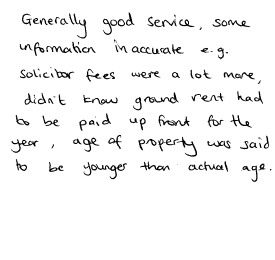 Generally good service, some
information inaccurate e.g.
solicitor fees were a lot more,
didn't know ground rent had
to be paid up front for the
year, age of property was said
to be younger than actual age.